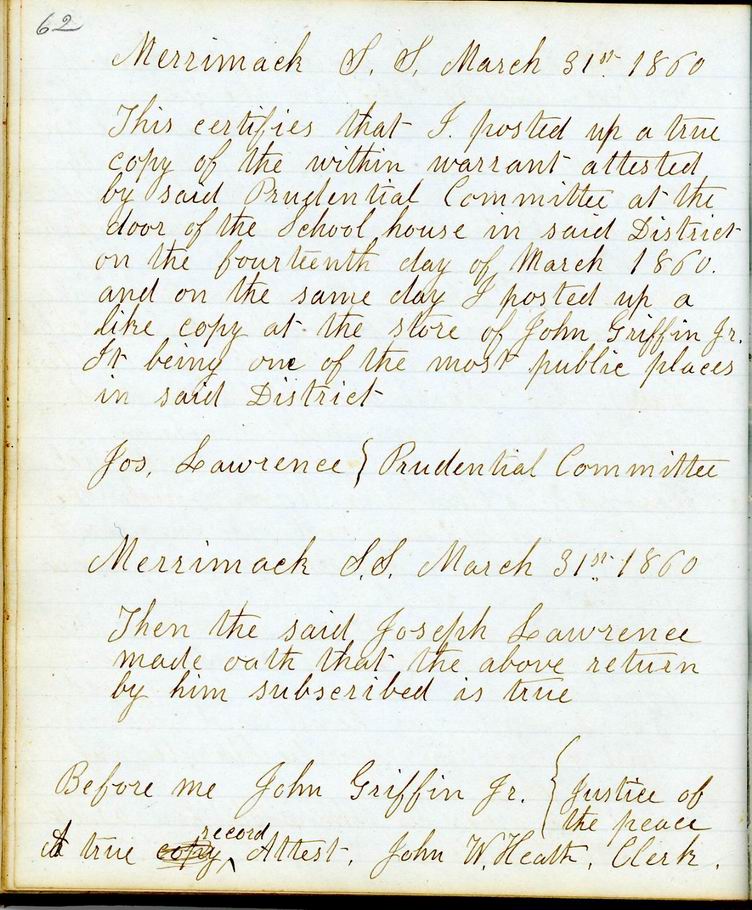 62
Merrimack S. S. March 31st 1860
This certifies that I. posted up a true
copy of the within warrant attested
by said Prudential Committee at the
door of the School house in said District
on the fourteenth day of March 1860.
and on the same day I posted up a
like copy at the store of John Griffin Jr.
It being one of the most public places
in said District
Jos. Lawrence } Prudential Committee
Merrimack S.S. March 31st 1860
Then the said Joseph Lawrence
made oath that the above return
by him subscribed is true
Before me John Griffin Jr. { Justice of
the peace
A true copy record Attest. John W. Heath. Clerk.